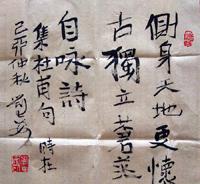 側身天地更懷
古獨立蒼茫
自咏詩
集杜甫句 時在
己卯仲秋